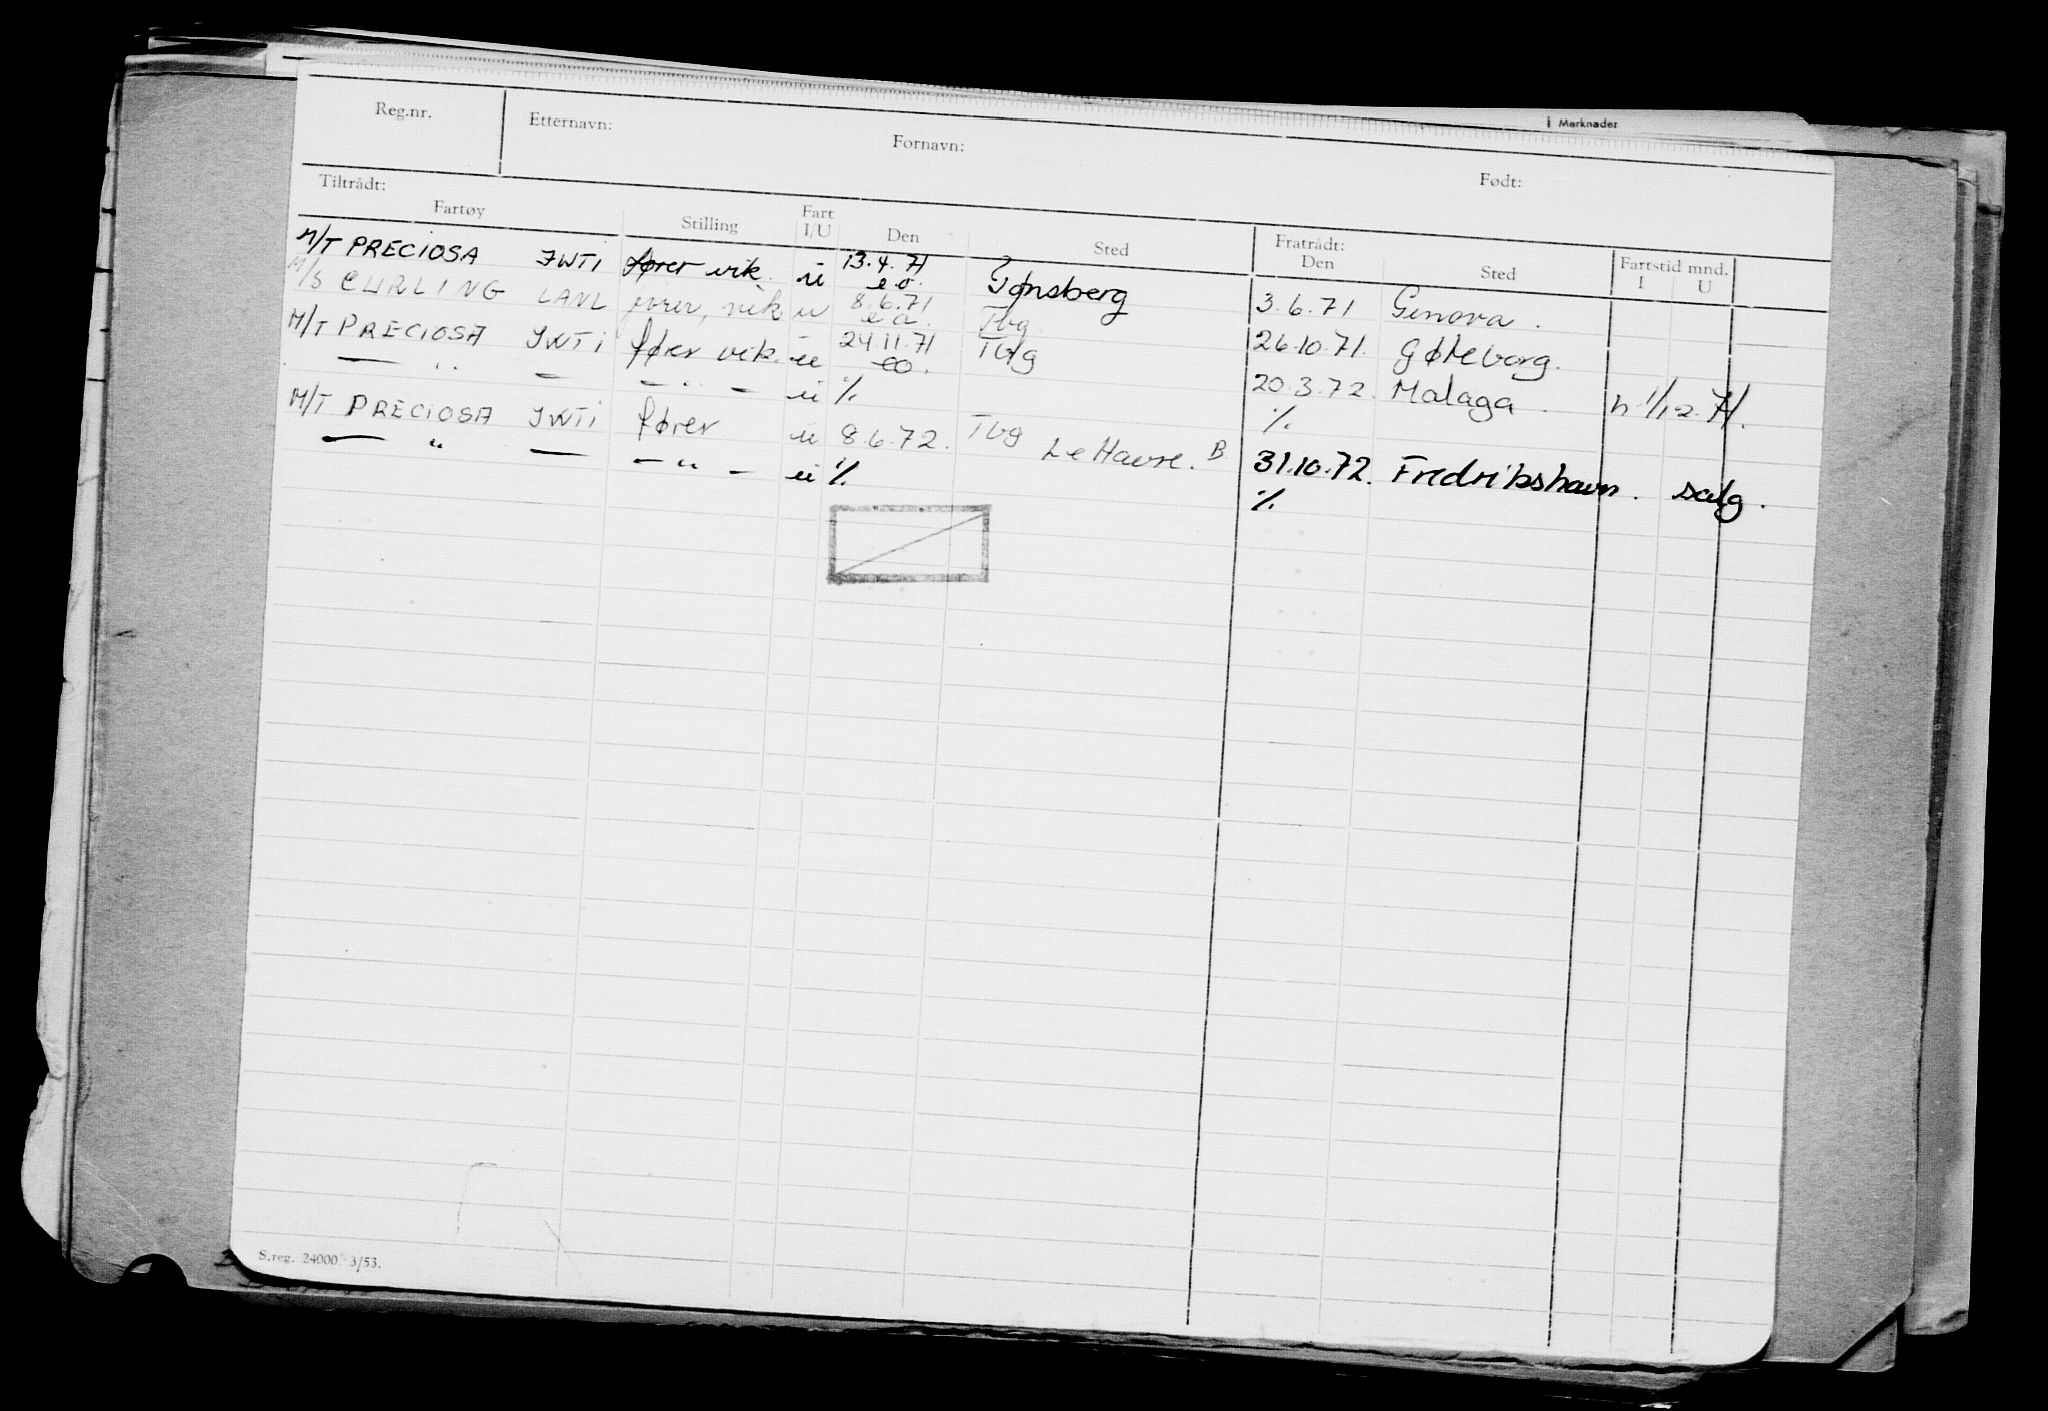 Merknader
Reg.nr. Etternavn: Fornavn: Født:
Tiltrådt: Fratrådt:
Fartøy Stilling Fart I/U Den Sted Den Sted Fartstid mnd. I U
M/T PRECIOSA JWTI fører vik. u 13.4.71 Tønsberg 3.6.71 Genova.
e o.
M/S CURLING LANL fører, vik u 8.6.71 Tbg 26.10.71. Gøteborg.
e o.
M/T PRECIOSA JWTI fører vik. u 24.11.71 Tbg 20.3.72. Malaga. n 1/12.71.
eo.
— " — — " — u %. %.
M/T PRECIOSA JWTI fører u 8.6.72. Tbg Le Havre. B 31.10.72. Fredrikshavn. salg.
— " — — " — u %. %.
S.reg. 24000. 3/53.